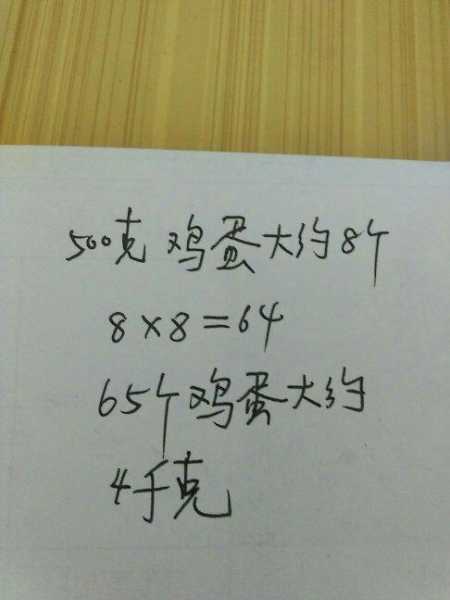 500克鸡蛋大约8个
8×8=64
65个鸡蛋大约
4千克